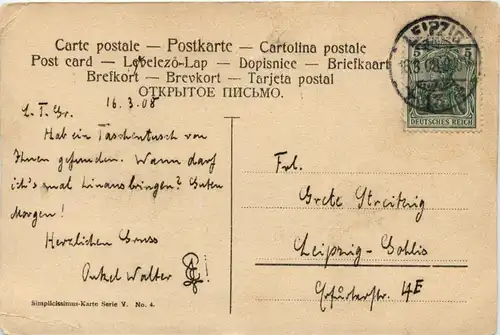 Carte postale — Postkarte — Cartolina postale
Post card — Levelező-Lap — Dopisnice — Briefkaart
Brefkort — Brevkort — Tarjeta postal
ОТКРЫТОЕ ПИСЬМО.
16.3.08
L. T. Gr.
Hab ein Taschentuch von
Ihnen gefunden. Wann darf
ich's mal hinausbringen? Guten
Morgen!
Herzlichen Gruss
Onkel Walter
Simplicissimus-Karte Serie V. No. 4.
LEIPZIG
5 5
DEUTSCHES REICH
Frl.
Grete Streitzig
Leipzig-Gohlis
Erfurterstr. 4E